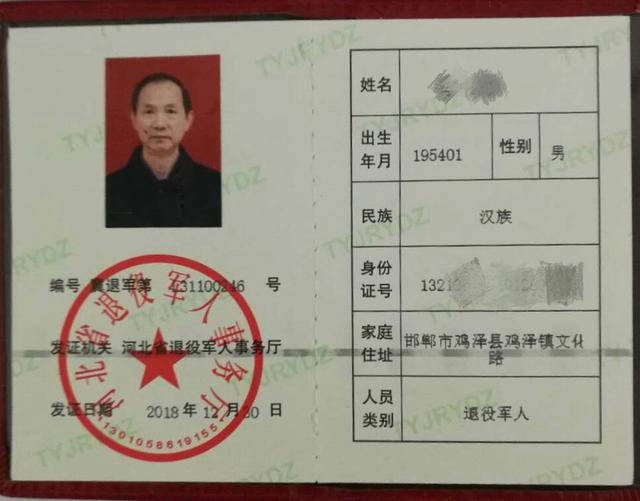 编号 冀退军第 431100246 号
发证机关 河北省退役军人事务厅
发证日期 2018年12月30日
河北省退役军人事务厅
1301058619155
姓名
出生年月 195401 性别 男
民族 汉族
身份证号 1321
家庭住址 邯郸市鸡泽县鸡泽镇文化
路
人员类别 退役军人
TYJRYDZ
TYJRYDZ
TYJRYDZ
TYJRYDZ
TYJRYDZ
TYJRYDZ
TYJRYDZ
TYJRYDZ